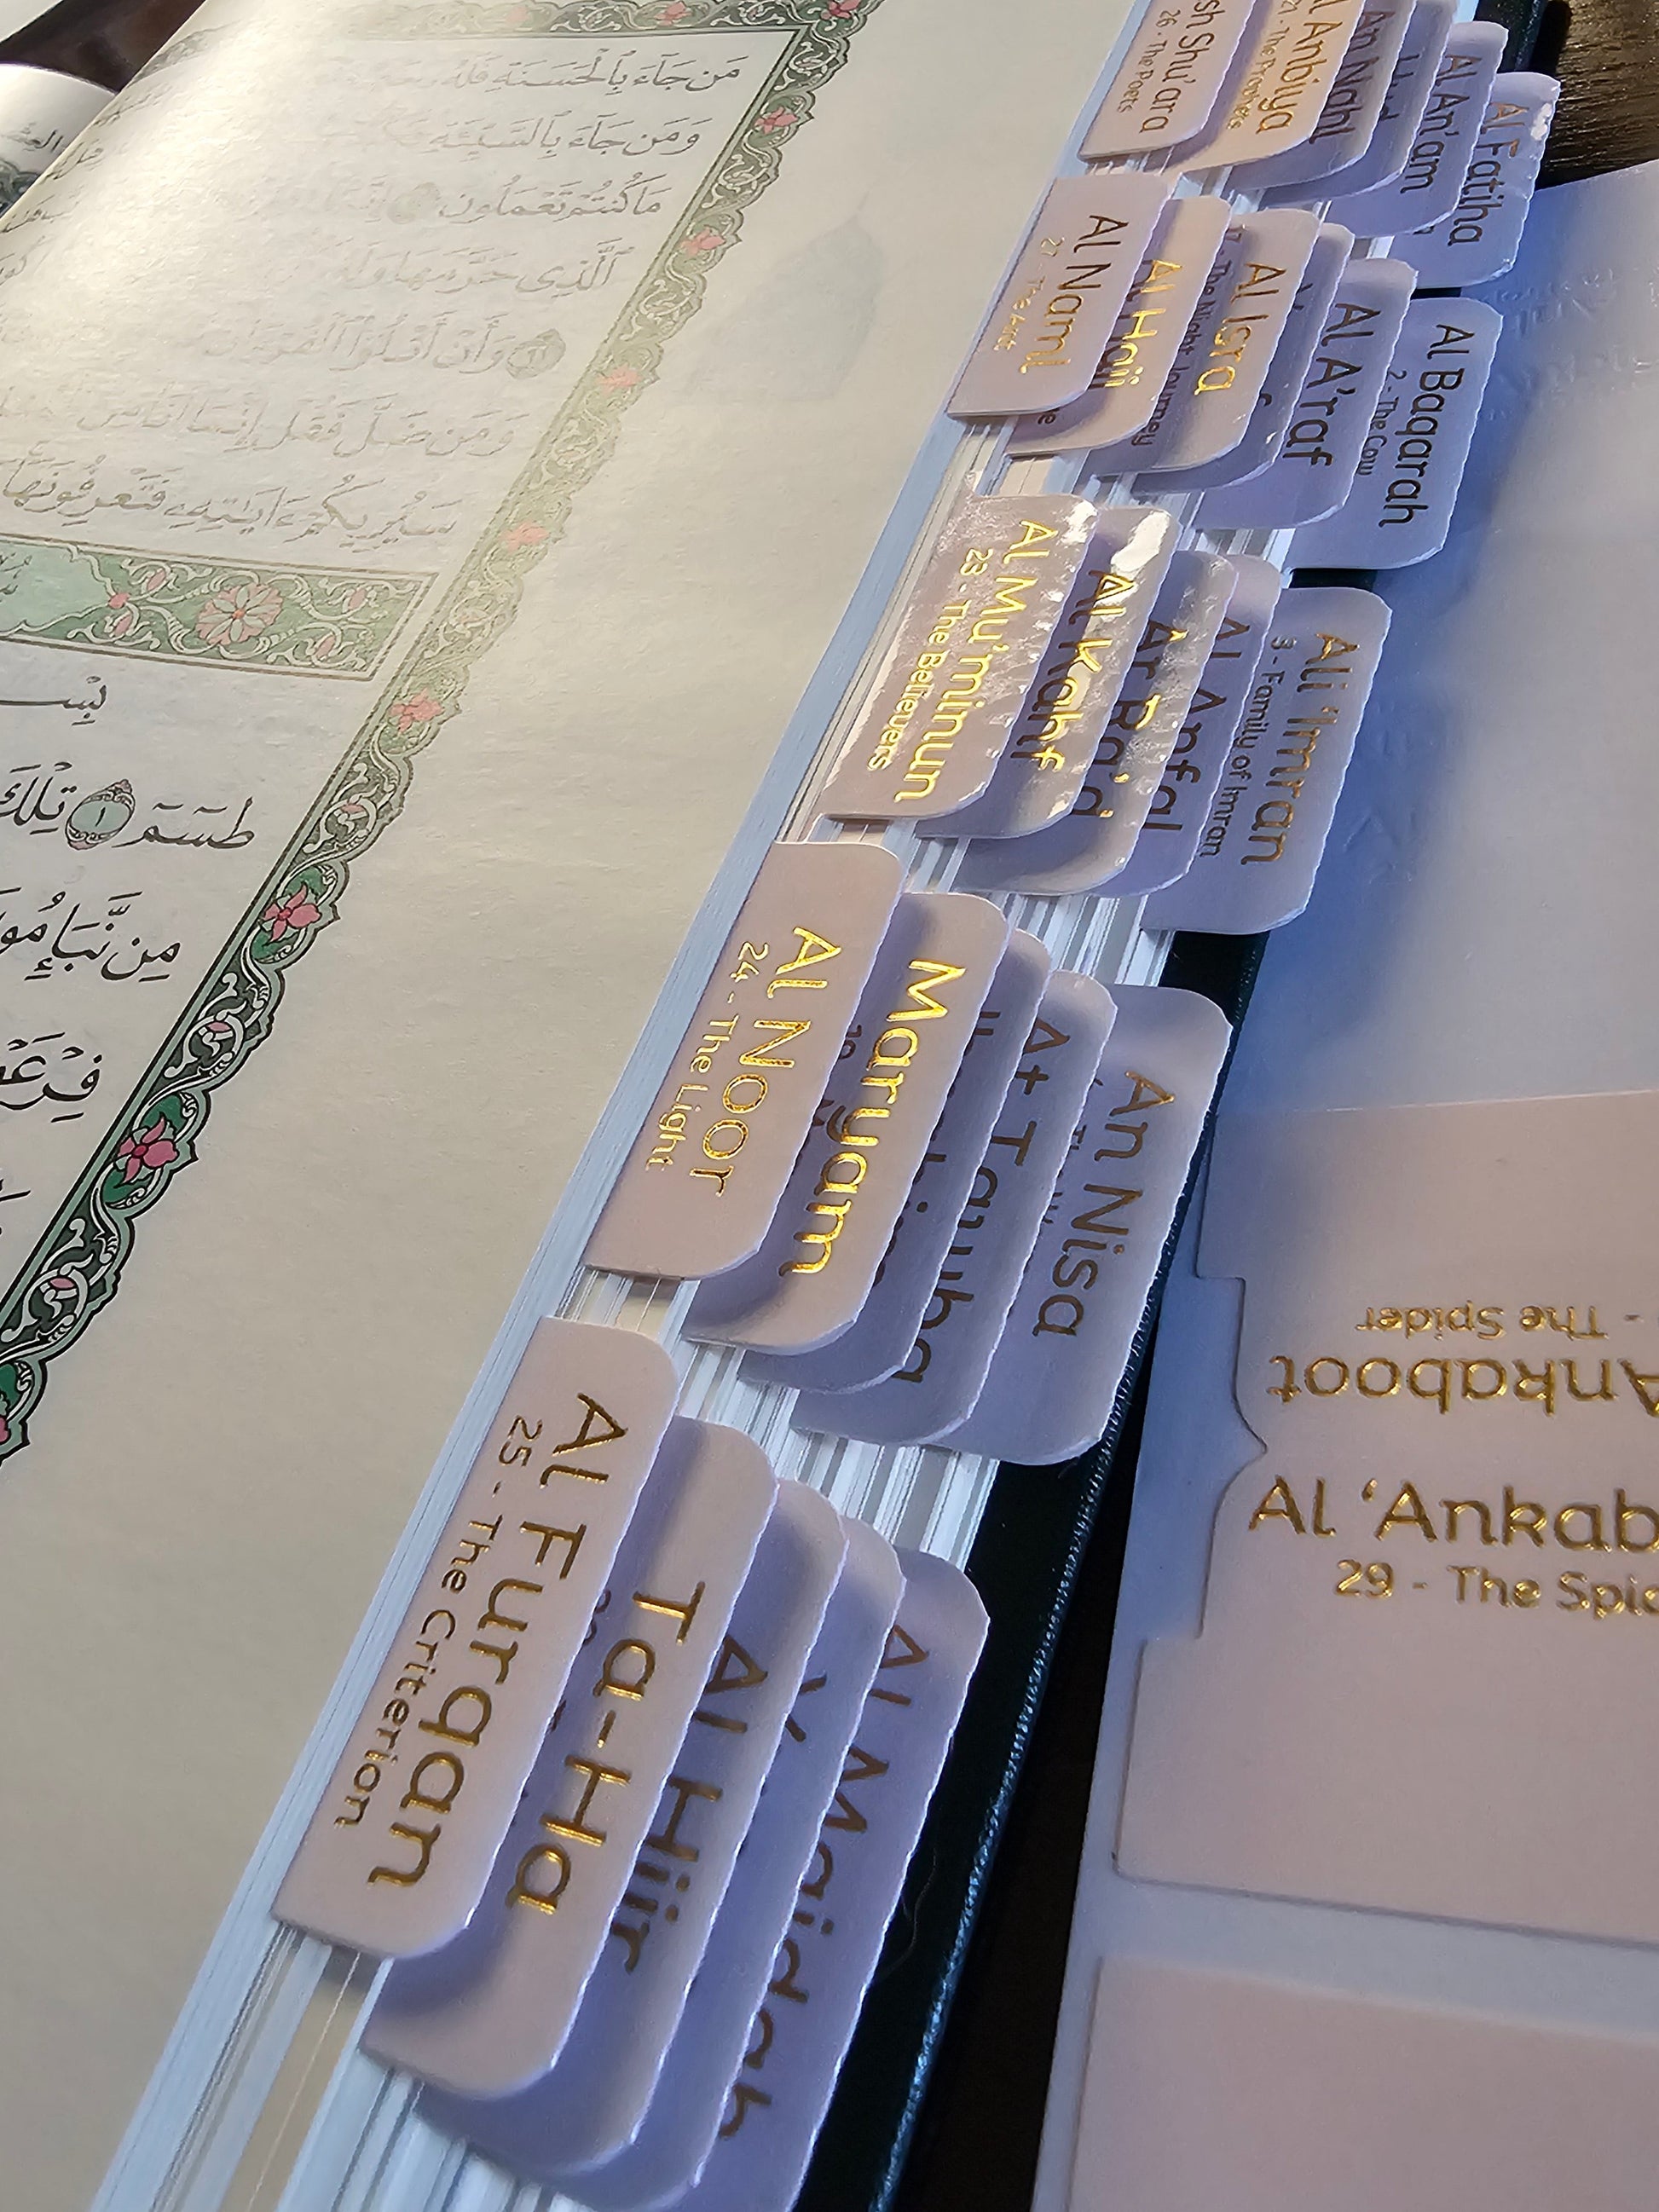 مَن جَآءَ بِٱلْحَسَنَةِ فَلَهُۥ
وَمَن جَآءَ بِٱلسَّيِّئَةِ
مَا كُنتُمْ تَعْمَلُونَ
ٱلَّذِى حَرَّمَهَا وَلَهُۥ
وَأَنْ أَتْلُوَا۟ ٱلْقُرْءَانَ
وَمَن ضَلَّ فَقُلْ إِنَّمَآ أَنَا۠ مِنَ
سَيُرِيكُمْ ءَايَٰتِهِۦ فَتَعْرِفُونَهَا
بِسْ
طسٓمٓ ١ تِلْكَ
مِن نَّبَإِ مُو
فِرْعَ
sh Shu'ara
26 - The Poets
Al Anbiya
21 - The Prophets
An Nahl
Al An'am
Al Fatiha
Al Naml
27 - The Ants
Al Hajj
Al Isra
17 - The Night Journey
Al A'raf
Al Baqarah
2 - The Cow
Al Mu'minun
23 - The Believers
Al Kahf
Ar Ra'd
Al Anfal
Ali 'Imran
3 - Family of Imran
Al Noor
24 - The Light
Maryam
At Tauba
An Nisa
Al Furqan
25 - The Criterion
Ta-Ha
Al Hijr
Al Maidah
- The Spider
Ankaboot
Al 'Ankab
29 - The Spid